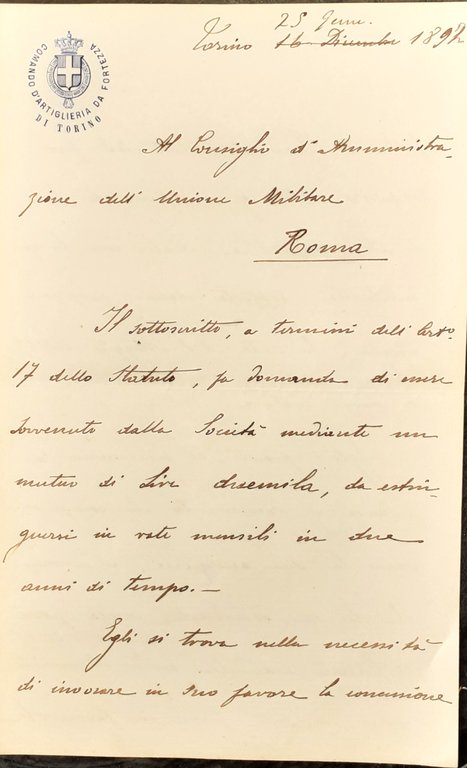 COMANDO D'ARTIGLIERIA DA FORTEZZA
DI TORINO
25 Genn.
Torino 16 Dicembre 1892
Al Consiglio d'Amministra-
zione dell'Unione Militare
Roma
Il sottoscritto, a termini dell'Arto.
17 dello Statuto, fa domanda di essere
sovvenuto dalla Società mediante un
mutuo di Lire duemila, da estin-
guersi in rate mensili in due
anni di tempo. —
Egli si trova nella necessità
di invocare in suo favore la concessione